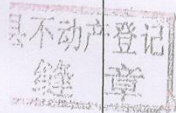 县不动产登记
缝 章